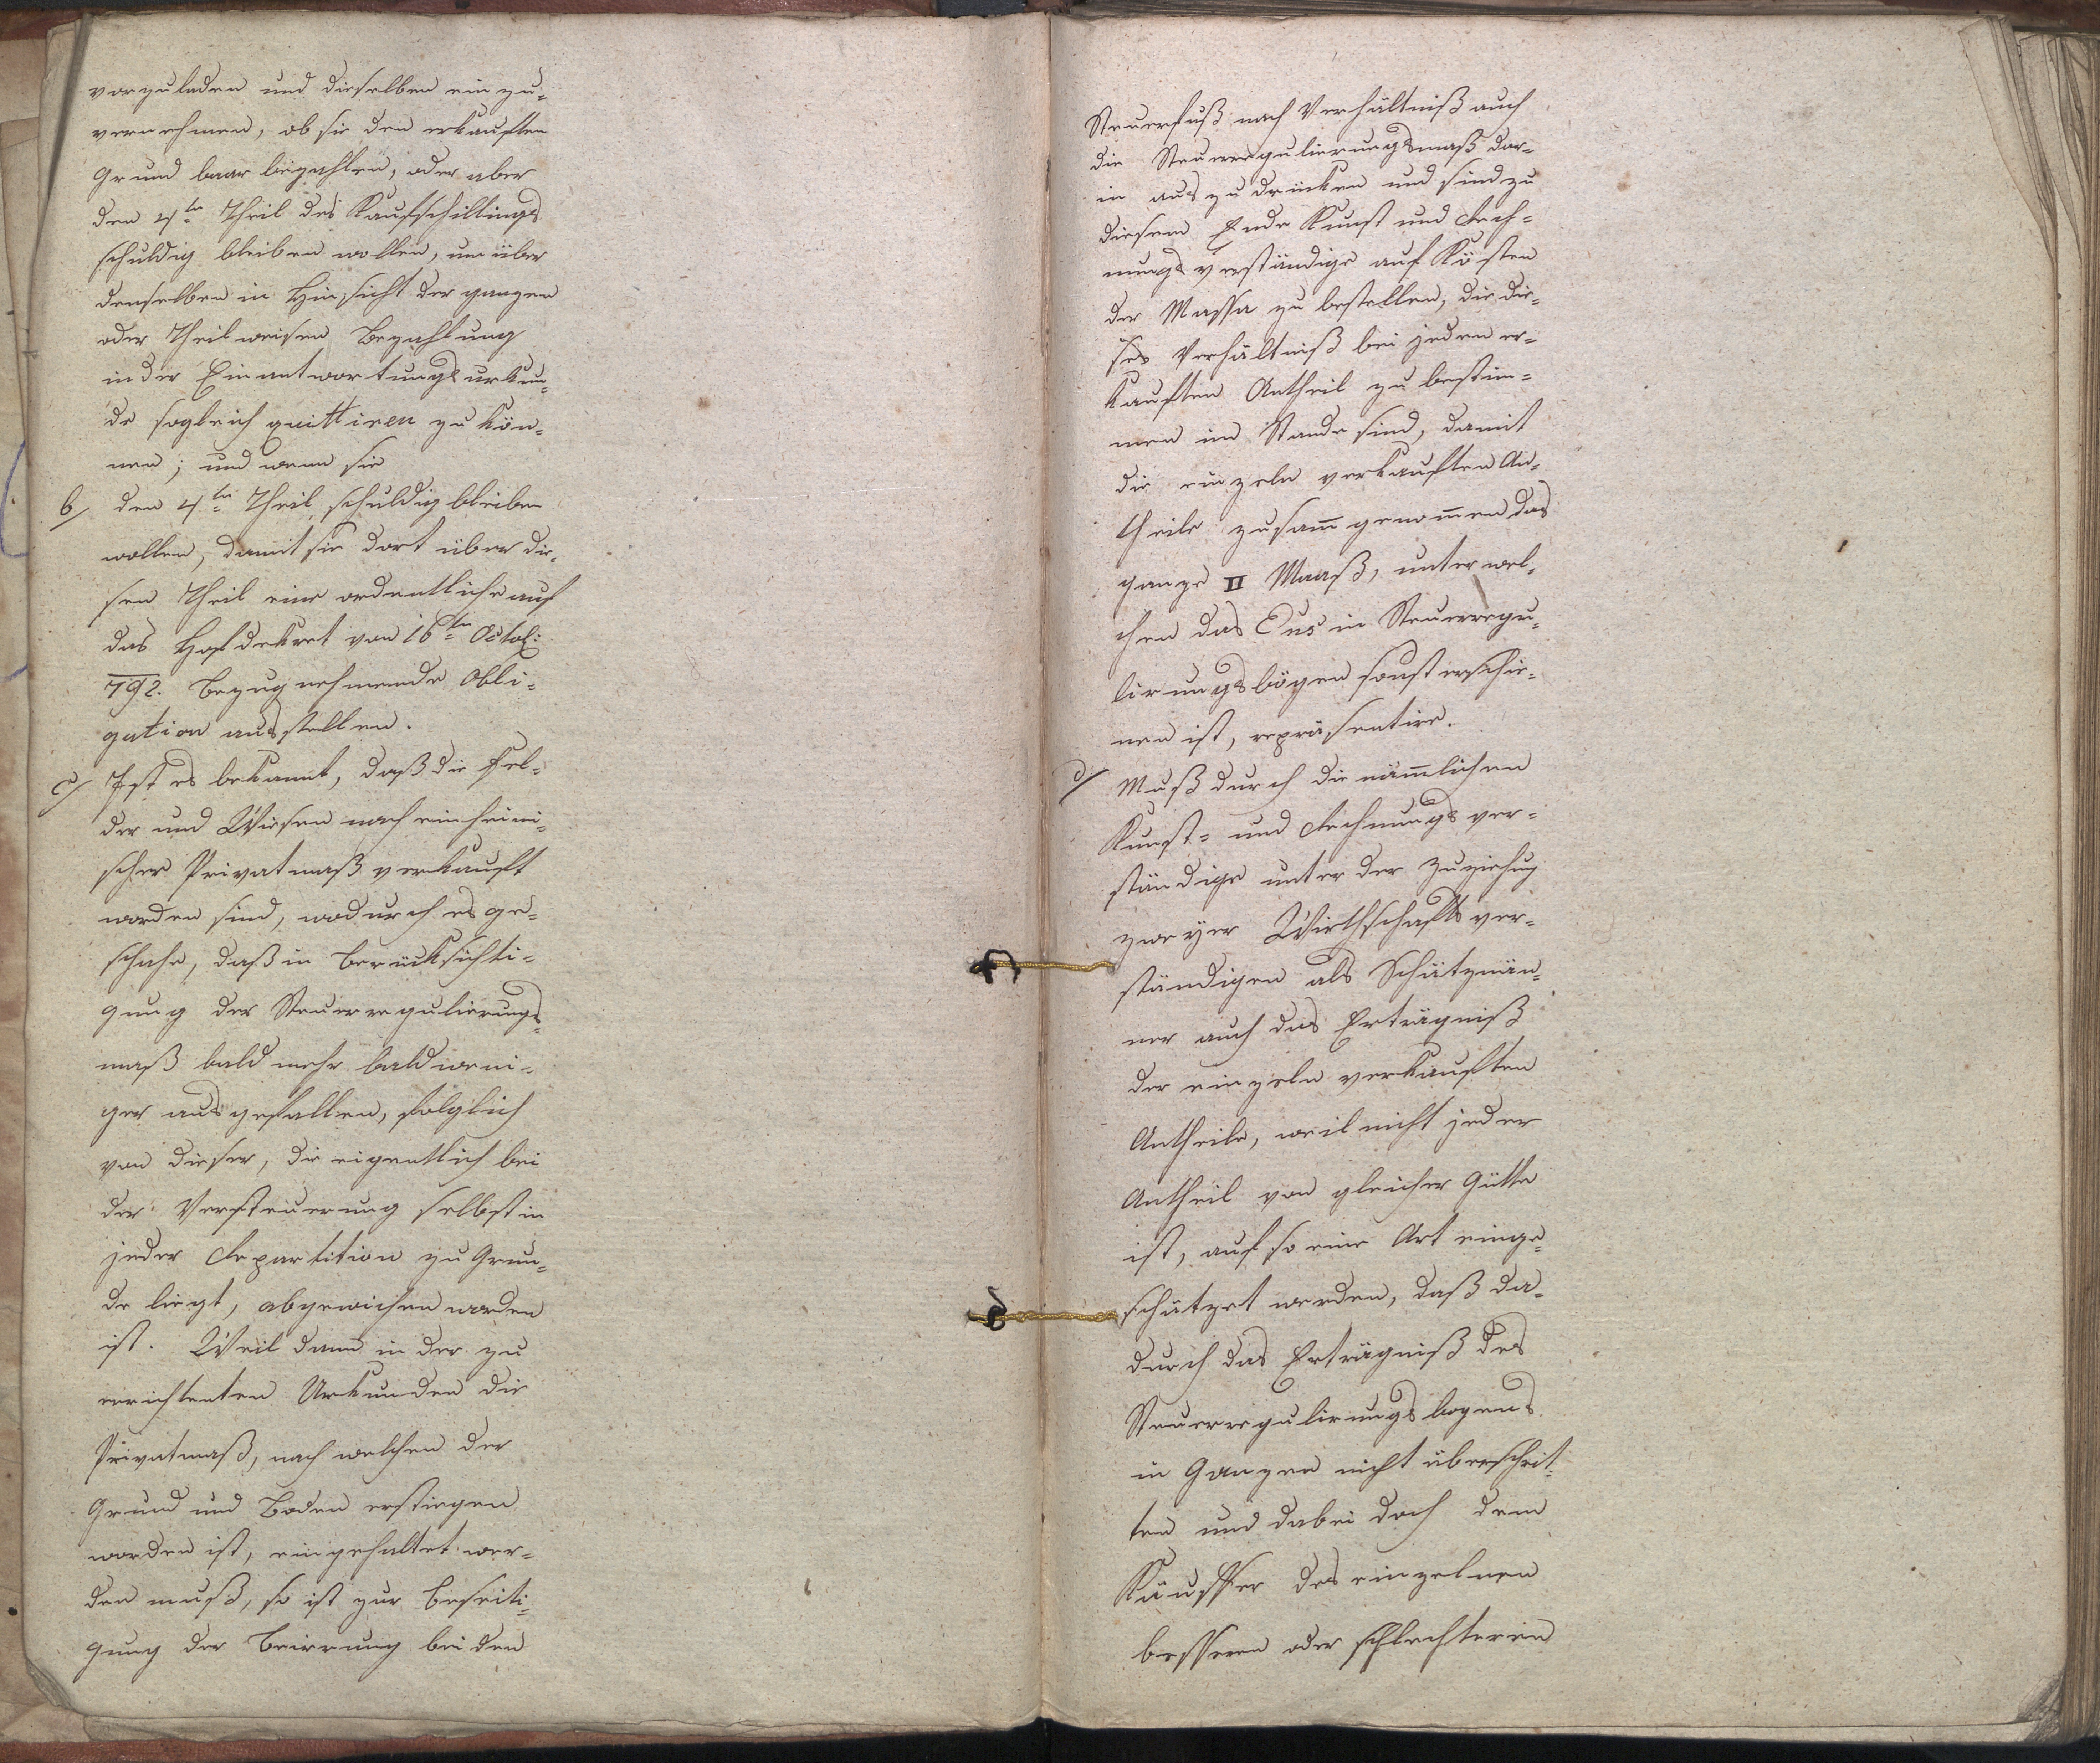 vorzuladen und dieselben einzu-
vernehmen, ob sie den erkauften
Grund baar bezahlen, oder aber
den 4tn Theil des Kaufschillings
schuldig bleiben wollen, um über
denselben in Hinsicht der ganzen
oder Theilweisen Bezahlung
in der Einantwortungsurkun-
de sogleich quittiren zu kön-
nen; und wenn sie
b/ den 4tn Theil schuldig bleiben
wollen, damit sie dort über die-
sen Theil eine ordentliche auf
das Hofdekret von 16tn Octob:
792. Bezug nehmende Obli-
gation ausstellen.
c/ Ist es bekannt, daß die Fel-
der und Wiesen nach einheimi-
scher Privatmaß verkauft
worden sind, wodurch es ge-
schahe, daß in Berücksichti-
gung der Steuerregulierungs-
maß bald mehr bald weni-
ger ausgefallen, folglich
von dieser, die eigentlich bei
der Versteuerung selbst in
jeder Repartition zu Grun-
de liegt, abgewichen worden
ist. Weil dann in der zu
errichtenten Urkunden die
Privatmaß, nach welchen der
Grund und Boden erstiegen
worden ist, eingehaltet wer-
den muß, so ist zur Beseiti-
gung der Beirrung bei den
Steuerfuß nach Verhältniß auch
die Steuerregulierungsmaß dar-
in auszudrücken und sind zu
diesem Ende Kunst und Rech-
nungsverständige auf Kösten
der Massa zu bestellen, die die-
ses Verhältniß bei jeden er-
kauften Antheil zu bestim-
men im Stande sind, damit
die einzeln verkauften An-
theile zusam̅ genom̅en das
ganze II Maaß, unter wel-
chen das Ens in Steuerregu-
lirungsbögen sonst erschie-
nen ist, repräsentire.
d/ Muß durch die näm̅lichen
Kunst- und Rechnungsver-
ständige unter der Zuziehung
zweyer Wirthschaftsver-
ständigen als Schätzmän-
ner auch das Erträgniß
der einzeln verkauften
Antheile, weil nicht jeder
Antheil von gleicher Gütte
ist, auf so eine Art einge-
schätzet werden, daß da-
durch das Erträgniß des
Steuerregulirungsbogens
in Ganzen nicht überschrit-
ten und dabei doch dem
Käuffer des einzelnen
besseren oder schlechteren